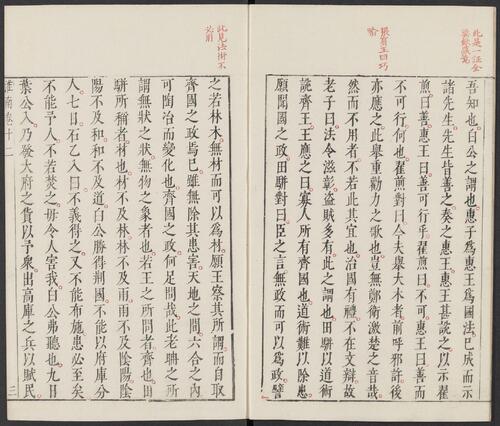 此是一証全
梁繇靡篇
張賓王曰巧
喻
吾知也白公之謂也惠子爲惠王爲國法已成而示
諸先生先生皆善之奏之惠王惠王甚說之以示翟
煎曰善惠王曰善可行乎翟煎曰不可惠王曰善而
不可行何也翟煎對曰今夫舉大木者前呼邪許後
亦應之此舉重勸力之歌也豈無鄭衞激楚之音哉
然而不用者不若此其宜也治國有禮不在文辯故
老子曰法令滋彰盜賊多有此之謂也田駢以道術
說齊王王應之曰寡人所有齊國也道術難以除患
願聞國之政田駢對曰臣之言無政而可以爲政譬
此見法術不
必用
之若林木無材而可以爲材願王察其所謂而自取
齊國之政焉巳雖無除其患害天地之間六合之內
可陶冶而變化也齊國之政何足問哉此老聃之所
謂無狀之狀無物之象者也若王之所問者齊也田
駢所稱者材也材不及林林不及雨雨不及陰陽陰
陽不及和和不及道白公勝得荊國不能以府庫分
人七日石乞入曰不義得之又不能布施患必至矣
不能予人不若焚之毋令人害我白公弗聽也九日
葉公入乃發大府之貨以予衆出高庫之兵以賦民
淮南卷十二
三